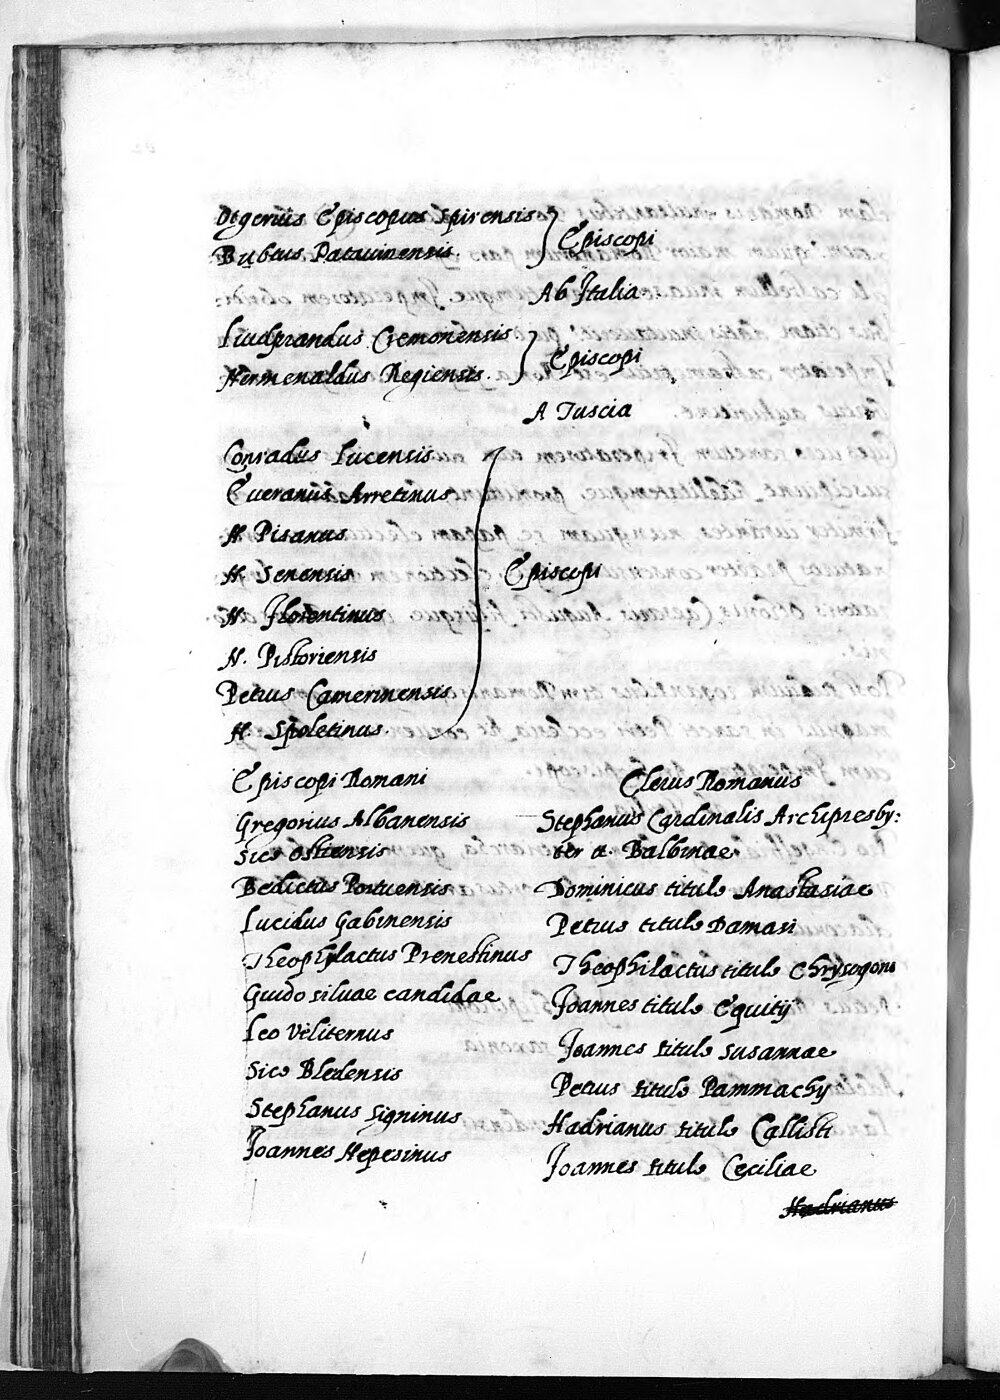 Otgerius Episcopus Spirensis
Bubeus Patauinensis.
Episcopi
Ab Italia
Liudprandus Cremonensis
Hermenaldus Regiensis.
Episcopi
A Tuscia
Conradus Lucensis
Eueranus Arretinus
N. Pisanus
N. Senensis
N. Florentinus
N. Pistoriensis
Petrus Camerinensis
N. Spoletinus.
Episcopi
Episcopi Romani
Gregorius Albanensis
Sico Ostiensis
Bedictus Portuensis
Lucidus Gabinensis
Theophylactus Prenestinus
Guido siluae candidae
Leo Veliternus
Sico Bledensis
Stephanus Signinus
Joannes Nepesinus
Clerus Romanus
Stephanus Cardinalis Archipresby:
ter tt. Balbinae
Dominicus titulo Anastasiae
Petrus titulo Damasi
Theophilactus titulo Chrysogoni
Joannes titulo Equitij
Joannes titulo Susannae
Petrus titulo Pammachy
Hadrianus titulo Callisti
Joannes titulo Ceciliae
Hadrianus